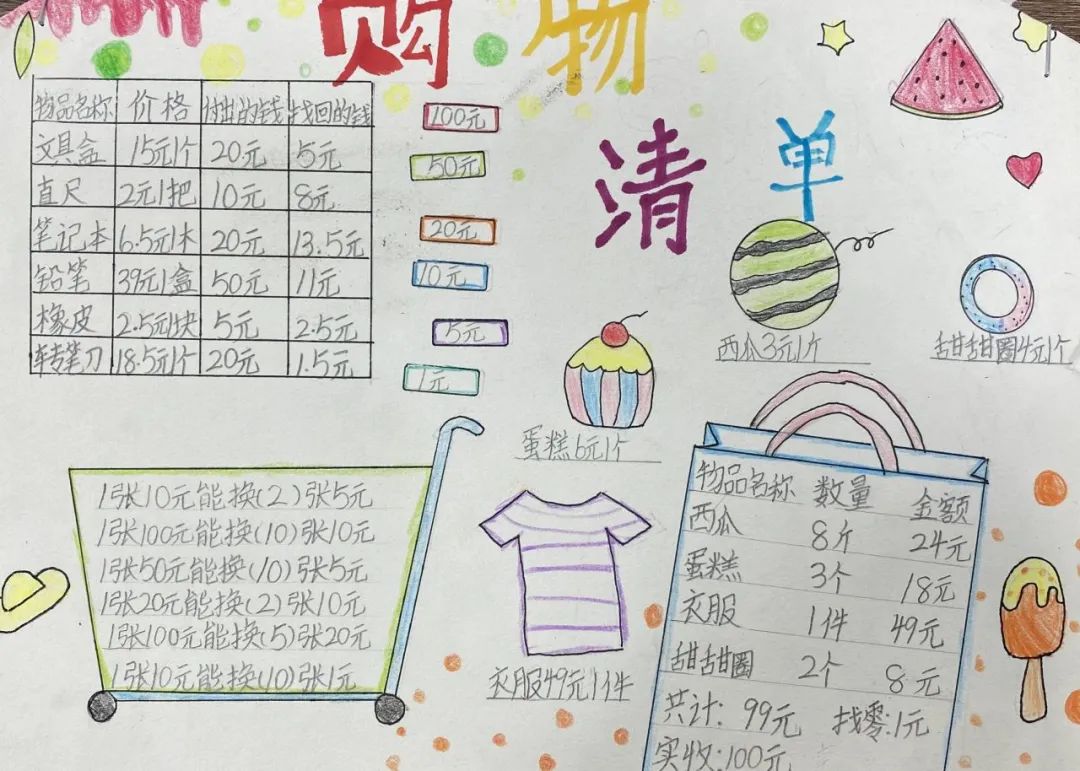 购物
清单
物品名称 价格 付出的钱 找回的钱
文具盒 15元1个 20元 5元
直尺 2元1把 10元 8元
笔记本 6.5元1本 20元 13.5元
铅笔 39元1盒 50元 11元
橡皮 2.5元1块 5元 2.5元
转笔刀 18.5元1个 20元 1.5元
100元
50元
20元
10元
5元
1元
西瓜3元1斤
甜甜圈4元1个
蛋糕6元1个
衣服49元1件
1张10元能换(2)张5元
1张100元能换(10)张10元
1张50元能换(10)张5元
1张20元能换(2)张10元
1张100元能换(5)张20元
1张10元能换(10)张1元
物品名称 数量 金额
西瓜 8斤 24元
蛋糕 3个 18元
衣服 1件 49元
甜甜圈 2个 8元
共计:99元 找零:1元
实收:100元